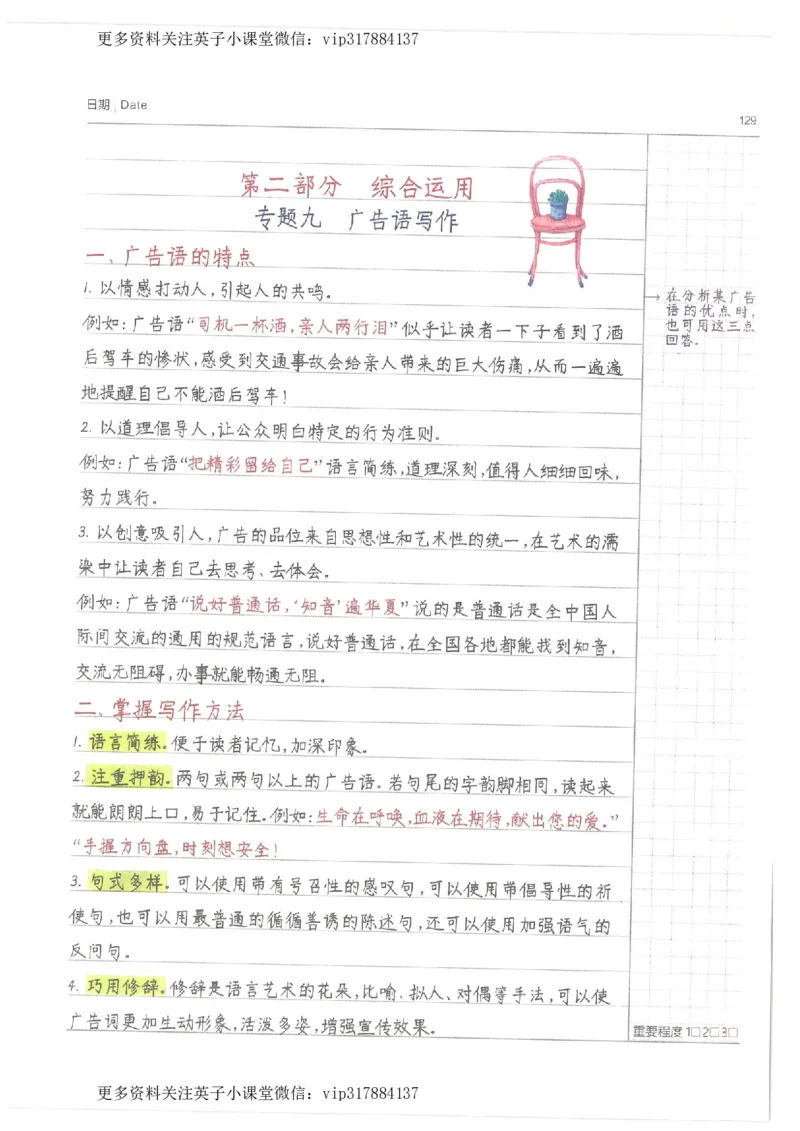 更多资料关注英子小课堂微信：vip317884137
日期 Date
129
第二部分 综合运用
专题九 广告语写作
一、广告语的特点
1. 以情感打动人，引起人的共鸣。
→ 在分析某广告
语的优点时，
也可用这三点
回答。
例如：广告语“司机一杯酒，亲人两行泪”似乎让读者一下子看到了酒
后驾车的惨状，感受到交通事故会给亲人带来的巨大伤痛，从而一遍遍
地提醒自己不能酒后驾车！
2. 以道理倡导人，让公众明白特定的行为准则。
例如：广告语“把精彩留给自己”语言简练，道理深刻，值得人细细回味，
努力践行。
3. 以创意吸引人，广告的品位来自思想性和艺术性的统一，在艺术的濡
染中让读者自己去思考、去体会。
例如：广告语“说好普通话，‘知音’遍华夏”说的是普通话是全中国人
际间交流的通用的规范语言，说好普通话，在全国各地都能找到知音，
交流无阻碍，办事就能畅通无阻。
二、掌握写作方法
1. 语言简练。便于读者记忆，加深印象。
2. 注重押韵。两句或两句以上的广告语。若句尾的字韵脚相同，读起来
就能朗朗上口，易于记住。例如：生命在呼唤，血液在期待，献出您的爱。”
“手握方向盘，时刻想安全！
3. 句式多样。可以使用带有号召性的感叹句，可以使用带倡导性的祈
使句，也可以用最普通的循循善诱的陈述句，还可以使用加强语气的
反问句。
4. 巧用修辞。修辞是语言艺术的花朵，比喻、拟人、对偶等手法，可以使
广告词更加生动形象，活泼多姿，增强宣传效果。
重要程度 1□ 2□ 3□
更多资料关注英子小课堂微信：vip317884137